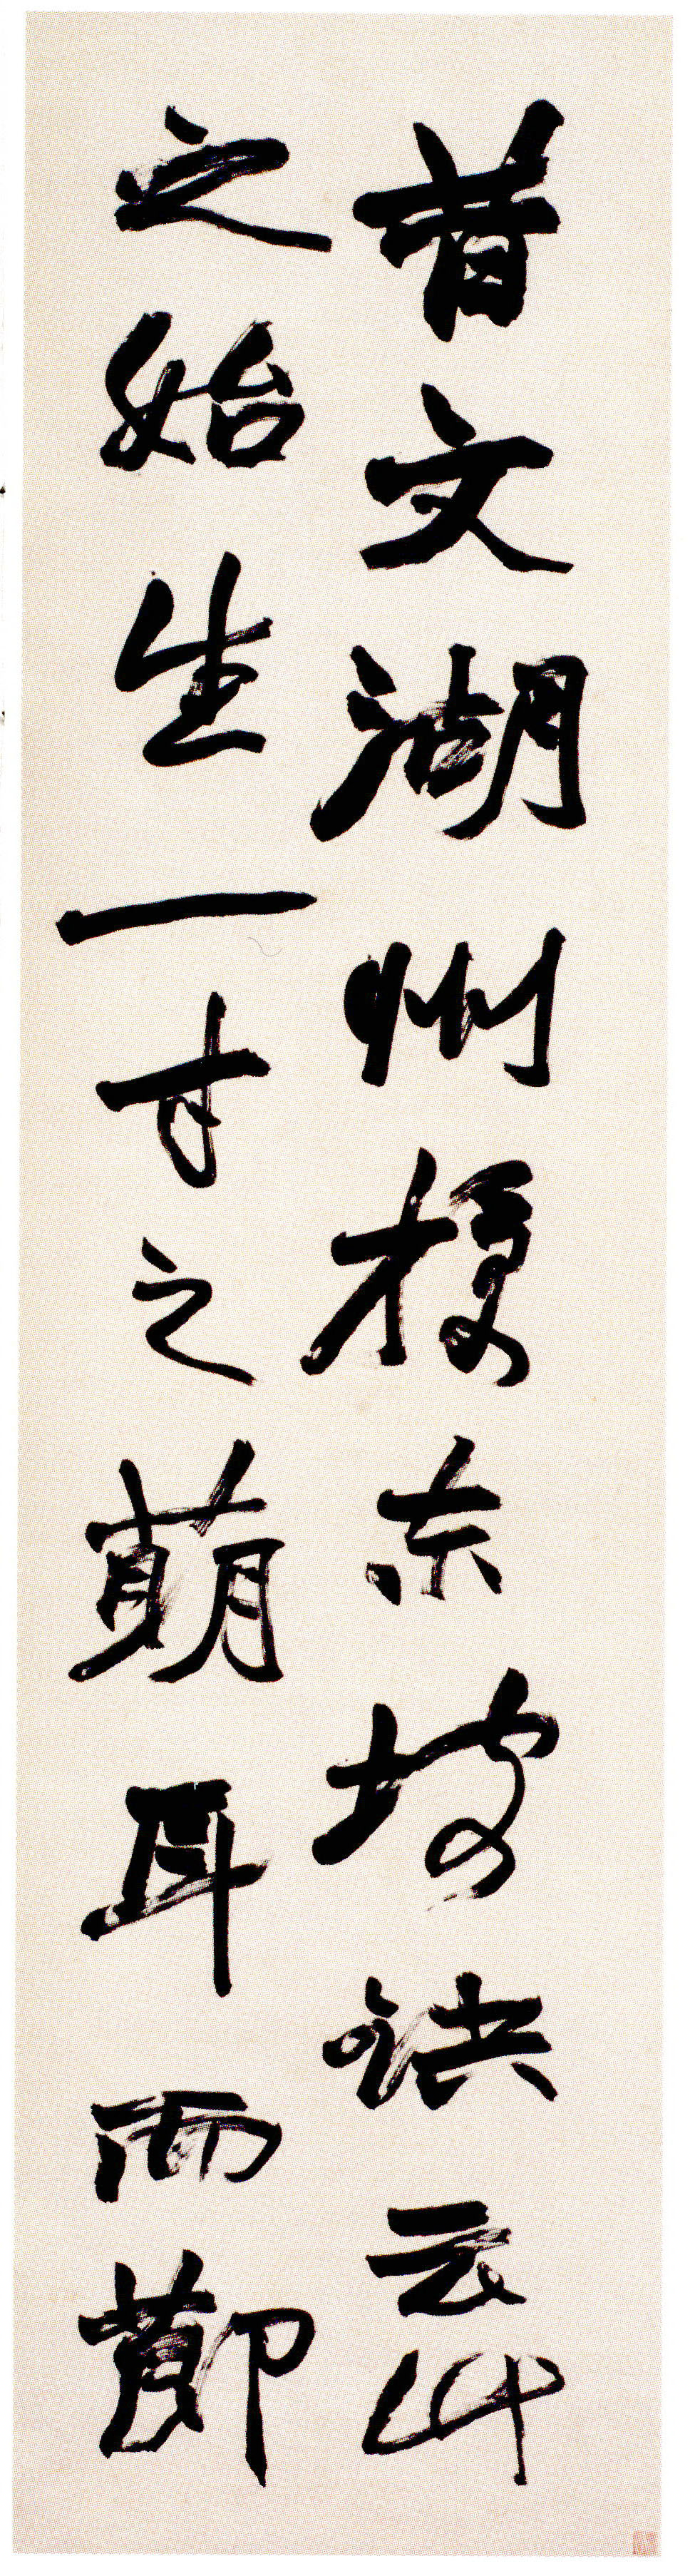 昔文湖州授东坡诀云竹
之始生一寸之萌耳而节